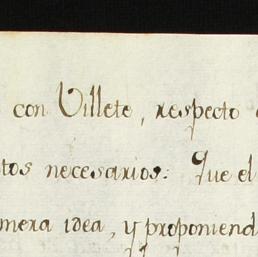 con Villete, respecto
tos necesarios: Que el
mera idea, y proponiend